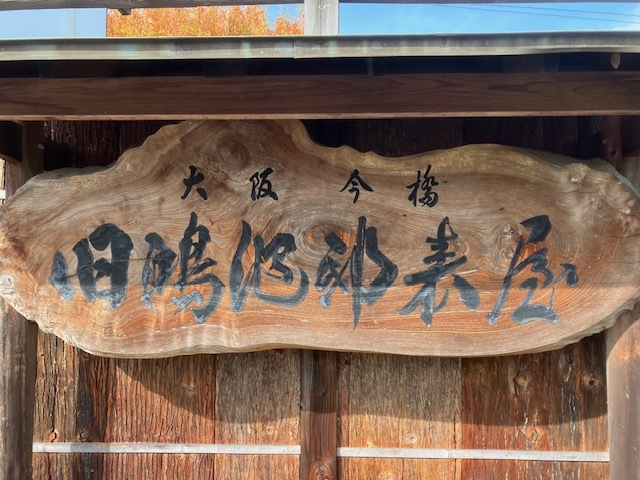 大阪今橋
旧鴻池邸表屋